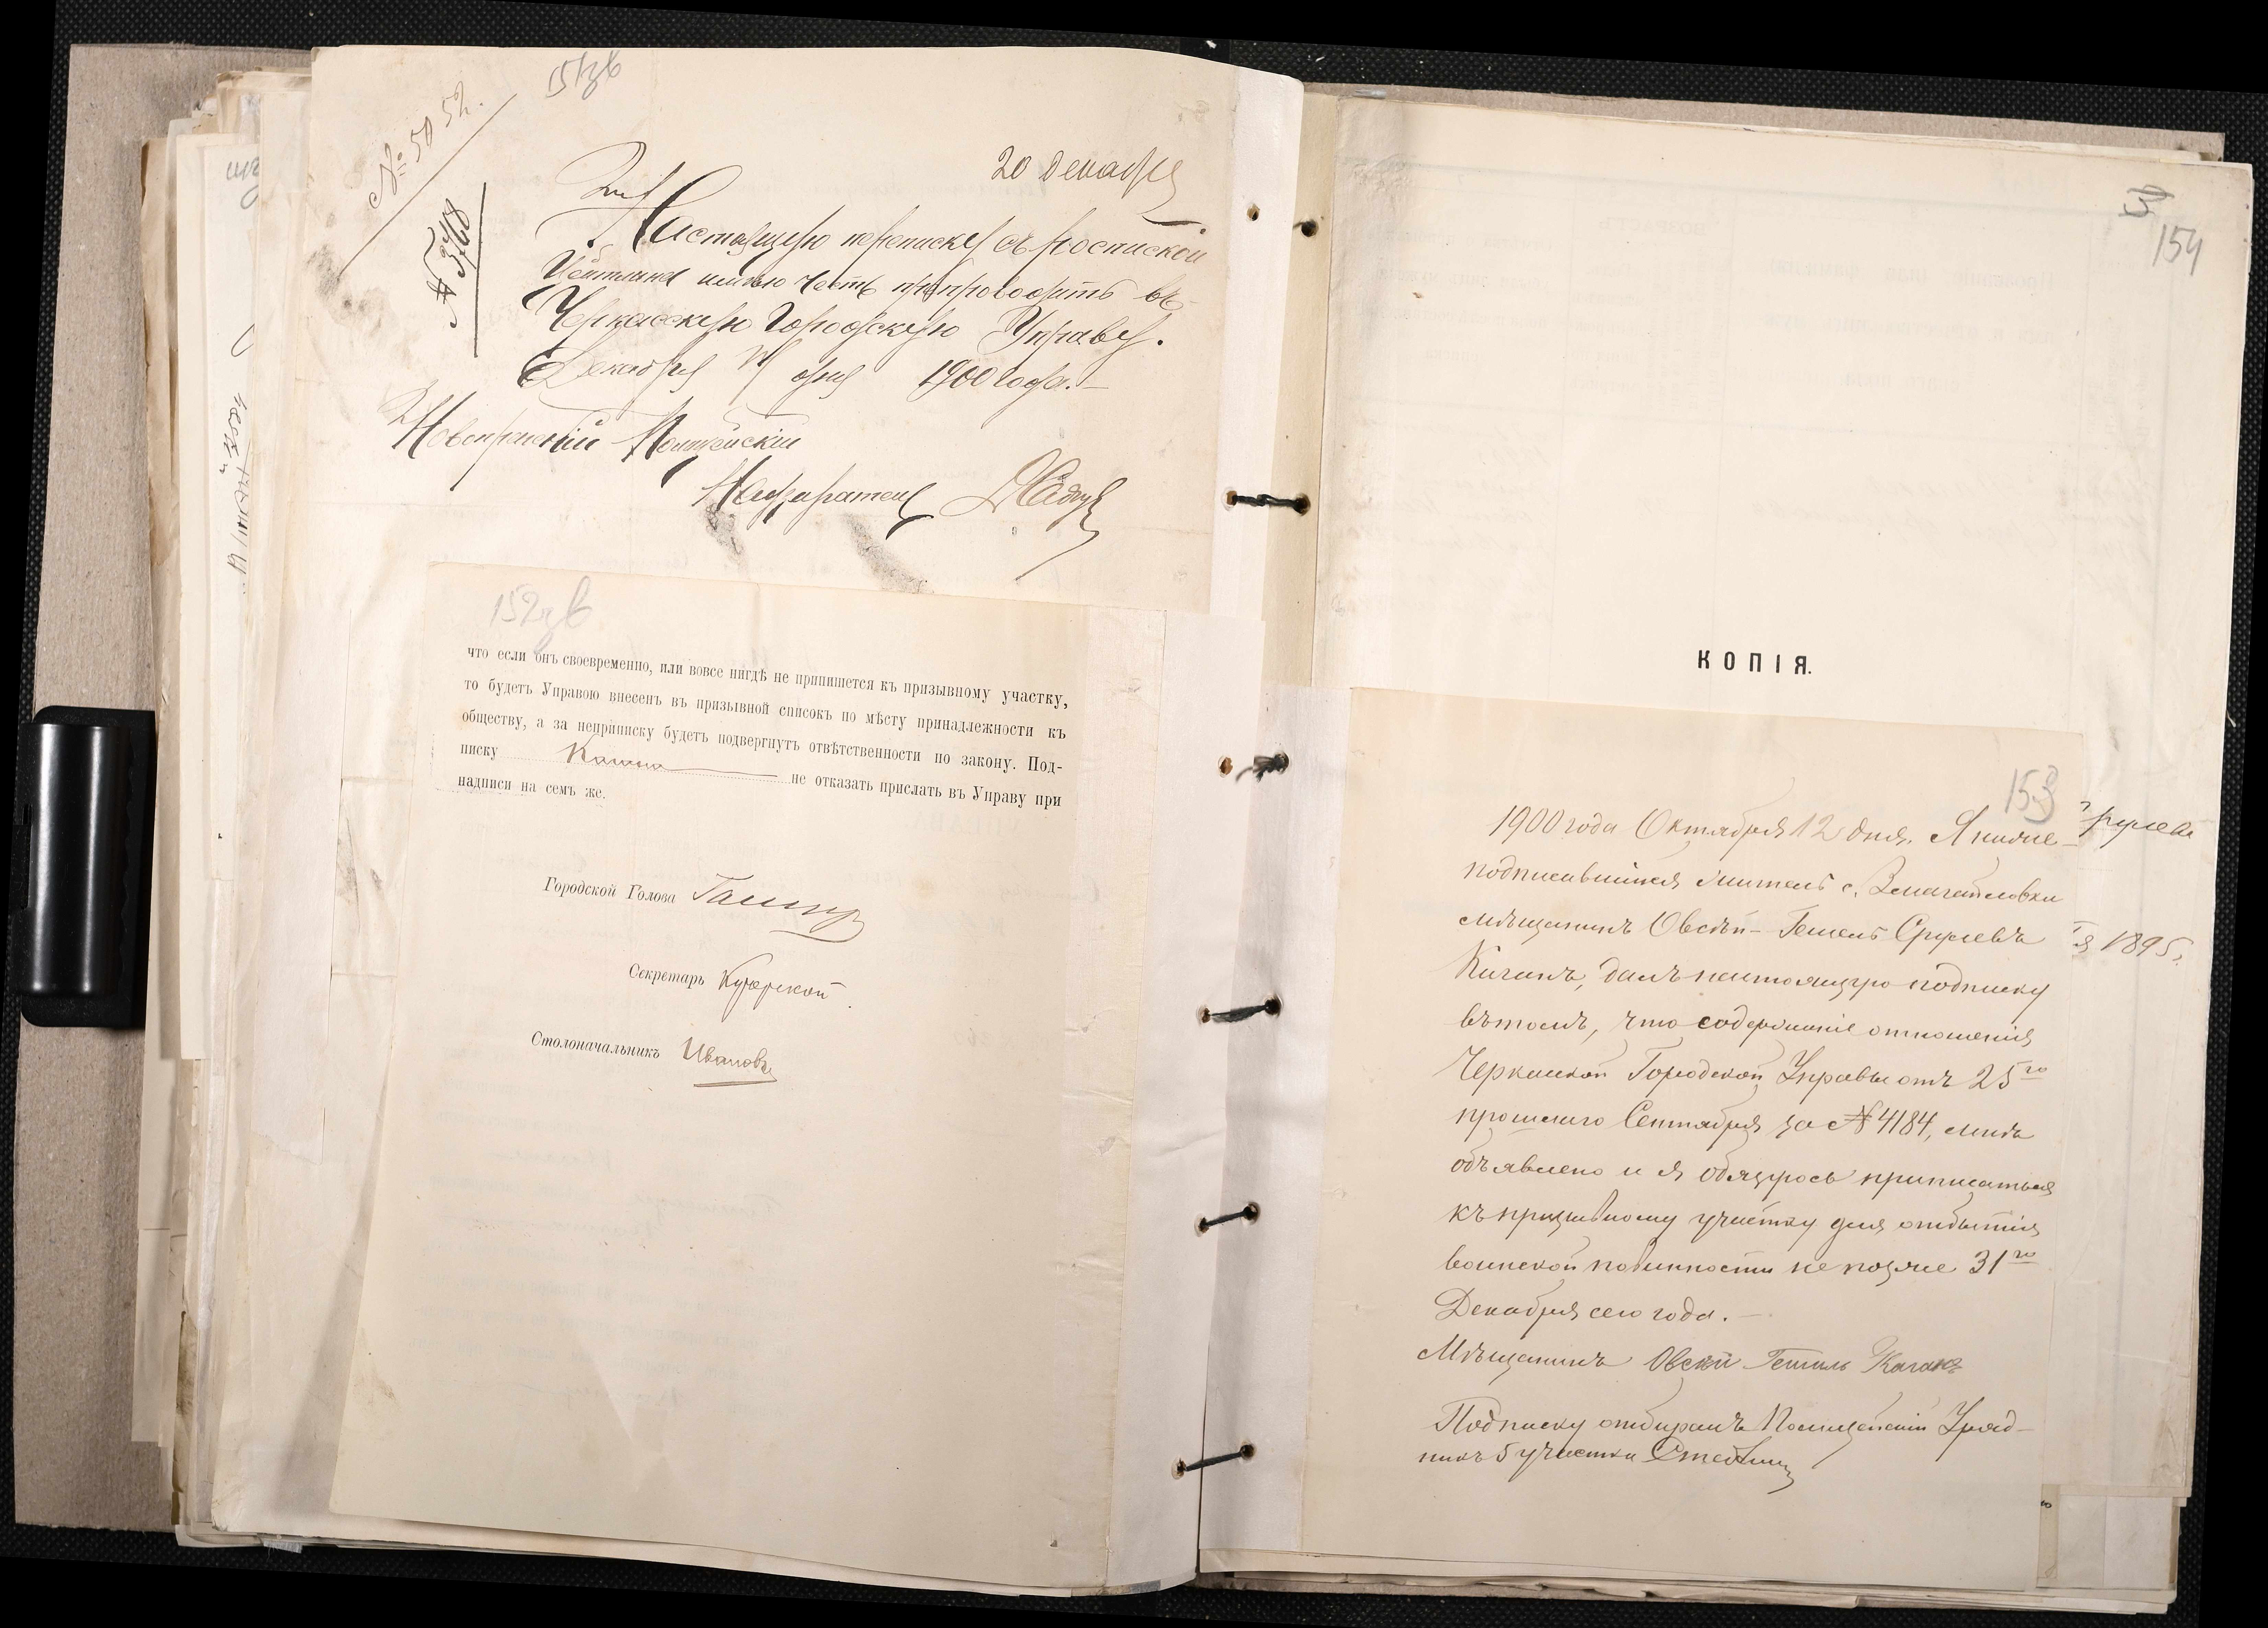 151зв
№ 5052.
№ 3768
20 Декабря
Настоящую переписку съ роспиской
Цейтлина имѣю честь препроводить въ
Черкасскую Городскую Управу.
Декабря дня 1900 года.
Полицейскій
Надзиратель
152зв
что если онъ своевременно, или вовсе нигдѣ не припишется къ призывному участку,
то будетъ Управою внесенъ въ призывной списокъ по мѣсту принадлежности къ
обществу, а за неприписку будетъ подвергнутъ отвѣтственности по закону. Под-
писку Кагана не отказать прислать въ Управу при
надписи на семъ же.
Городской Голова
Секретарь
Столоначальникъ Ивановъ
154
КОПІЯ.
153
1900 года Октября 12 дня. Я ниже
подписавшійся житель с.
мѣщанинъ Овсѣй-Гешель Срулевъ
Каганъ, далъ настоящую подписку
въ томъ, что содержаніе отношенія
Черкасской Городской Управы отъ 25го
прошлаго Сентября за № 4184, мнѣ
объявлено и я обязуюсь приписаться
къ призывному участку для отбытія
воинской повинности не позже 31го
Декабря сего года.
Мѣщанинъ Овсѣй Гешель Каганъ
Подписку отбиралъ Полицейскій Уряд-
никъ 5 участка
я 1895.